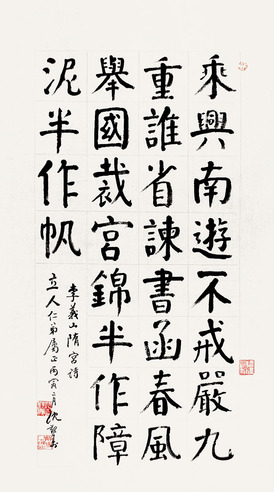 乘興南遊不戒嚴九
重誰省諫書函春風
舉國裁宮錦半作障
泥半作帆
李義山隋宮詩
立人仁弟屬正丙寅二月沈